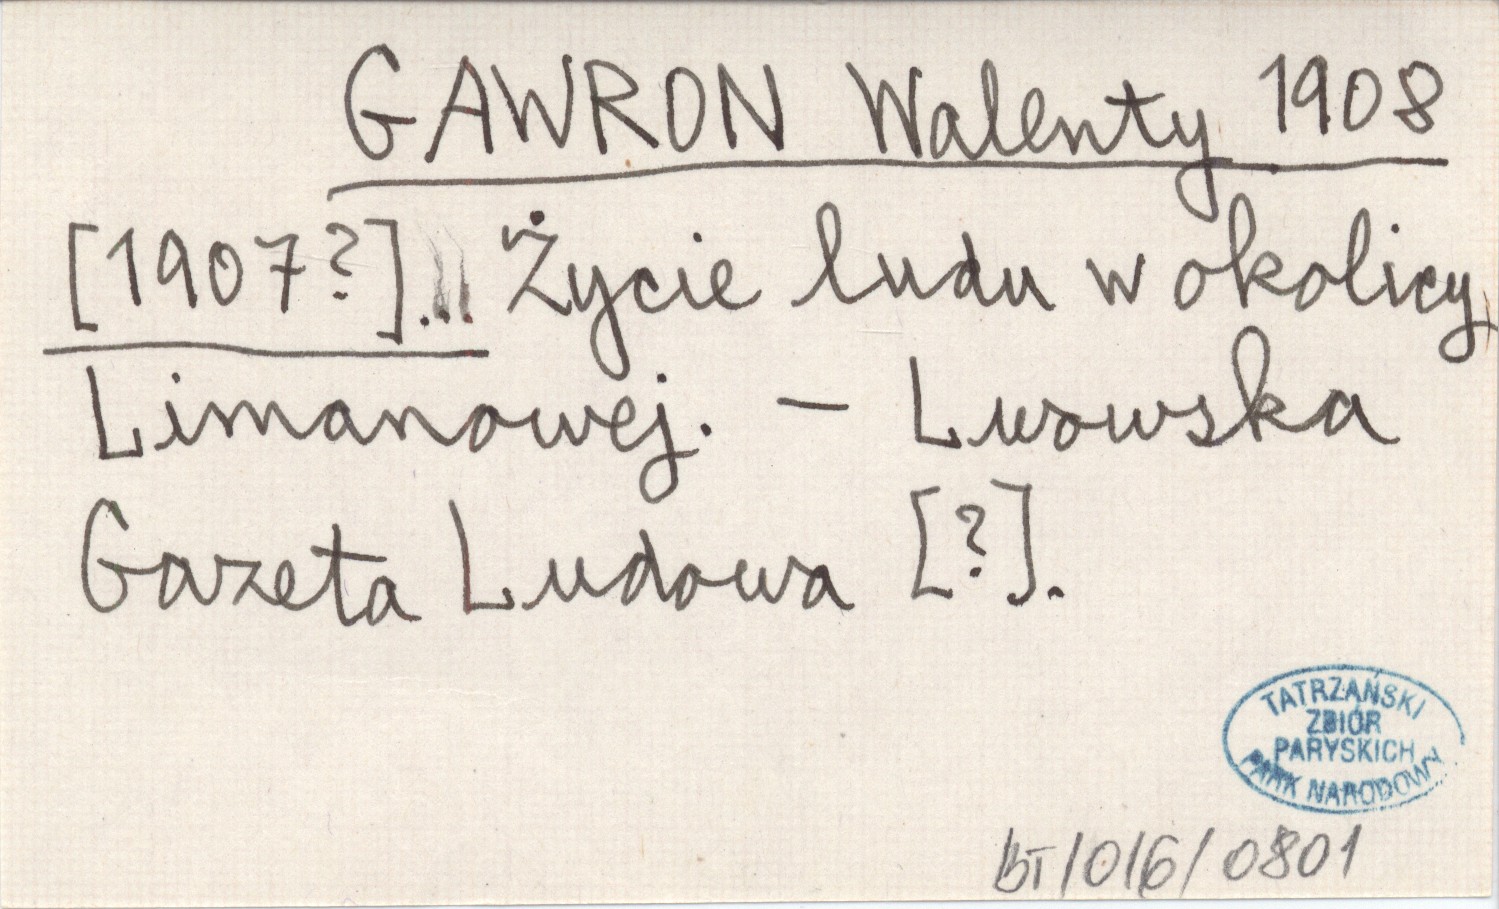 GAWRON Walenty 1908
[1907?]... Życie ludu w okolicy
Limanowej. — Lwowska
Gazeta Ludowa [?].
TATRZAŃSKI
ZBIÓR
PARYSKICH
PARK NARODOWY
BT/016/0801